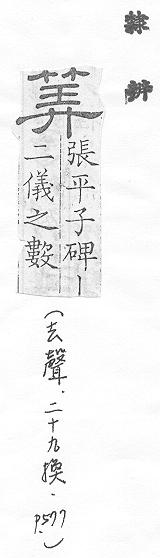 隸辨
筭
張平子碑丨
二儀之數
(去聲.二十九換.P.577)